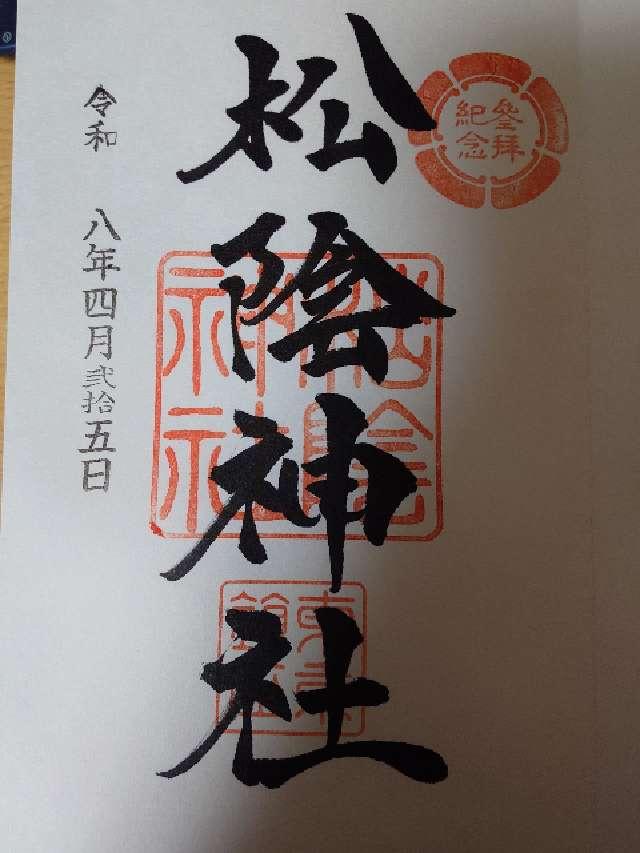 參拜
紀念
松陰神社
令和 八年四月弐拾五日
松陰
神社